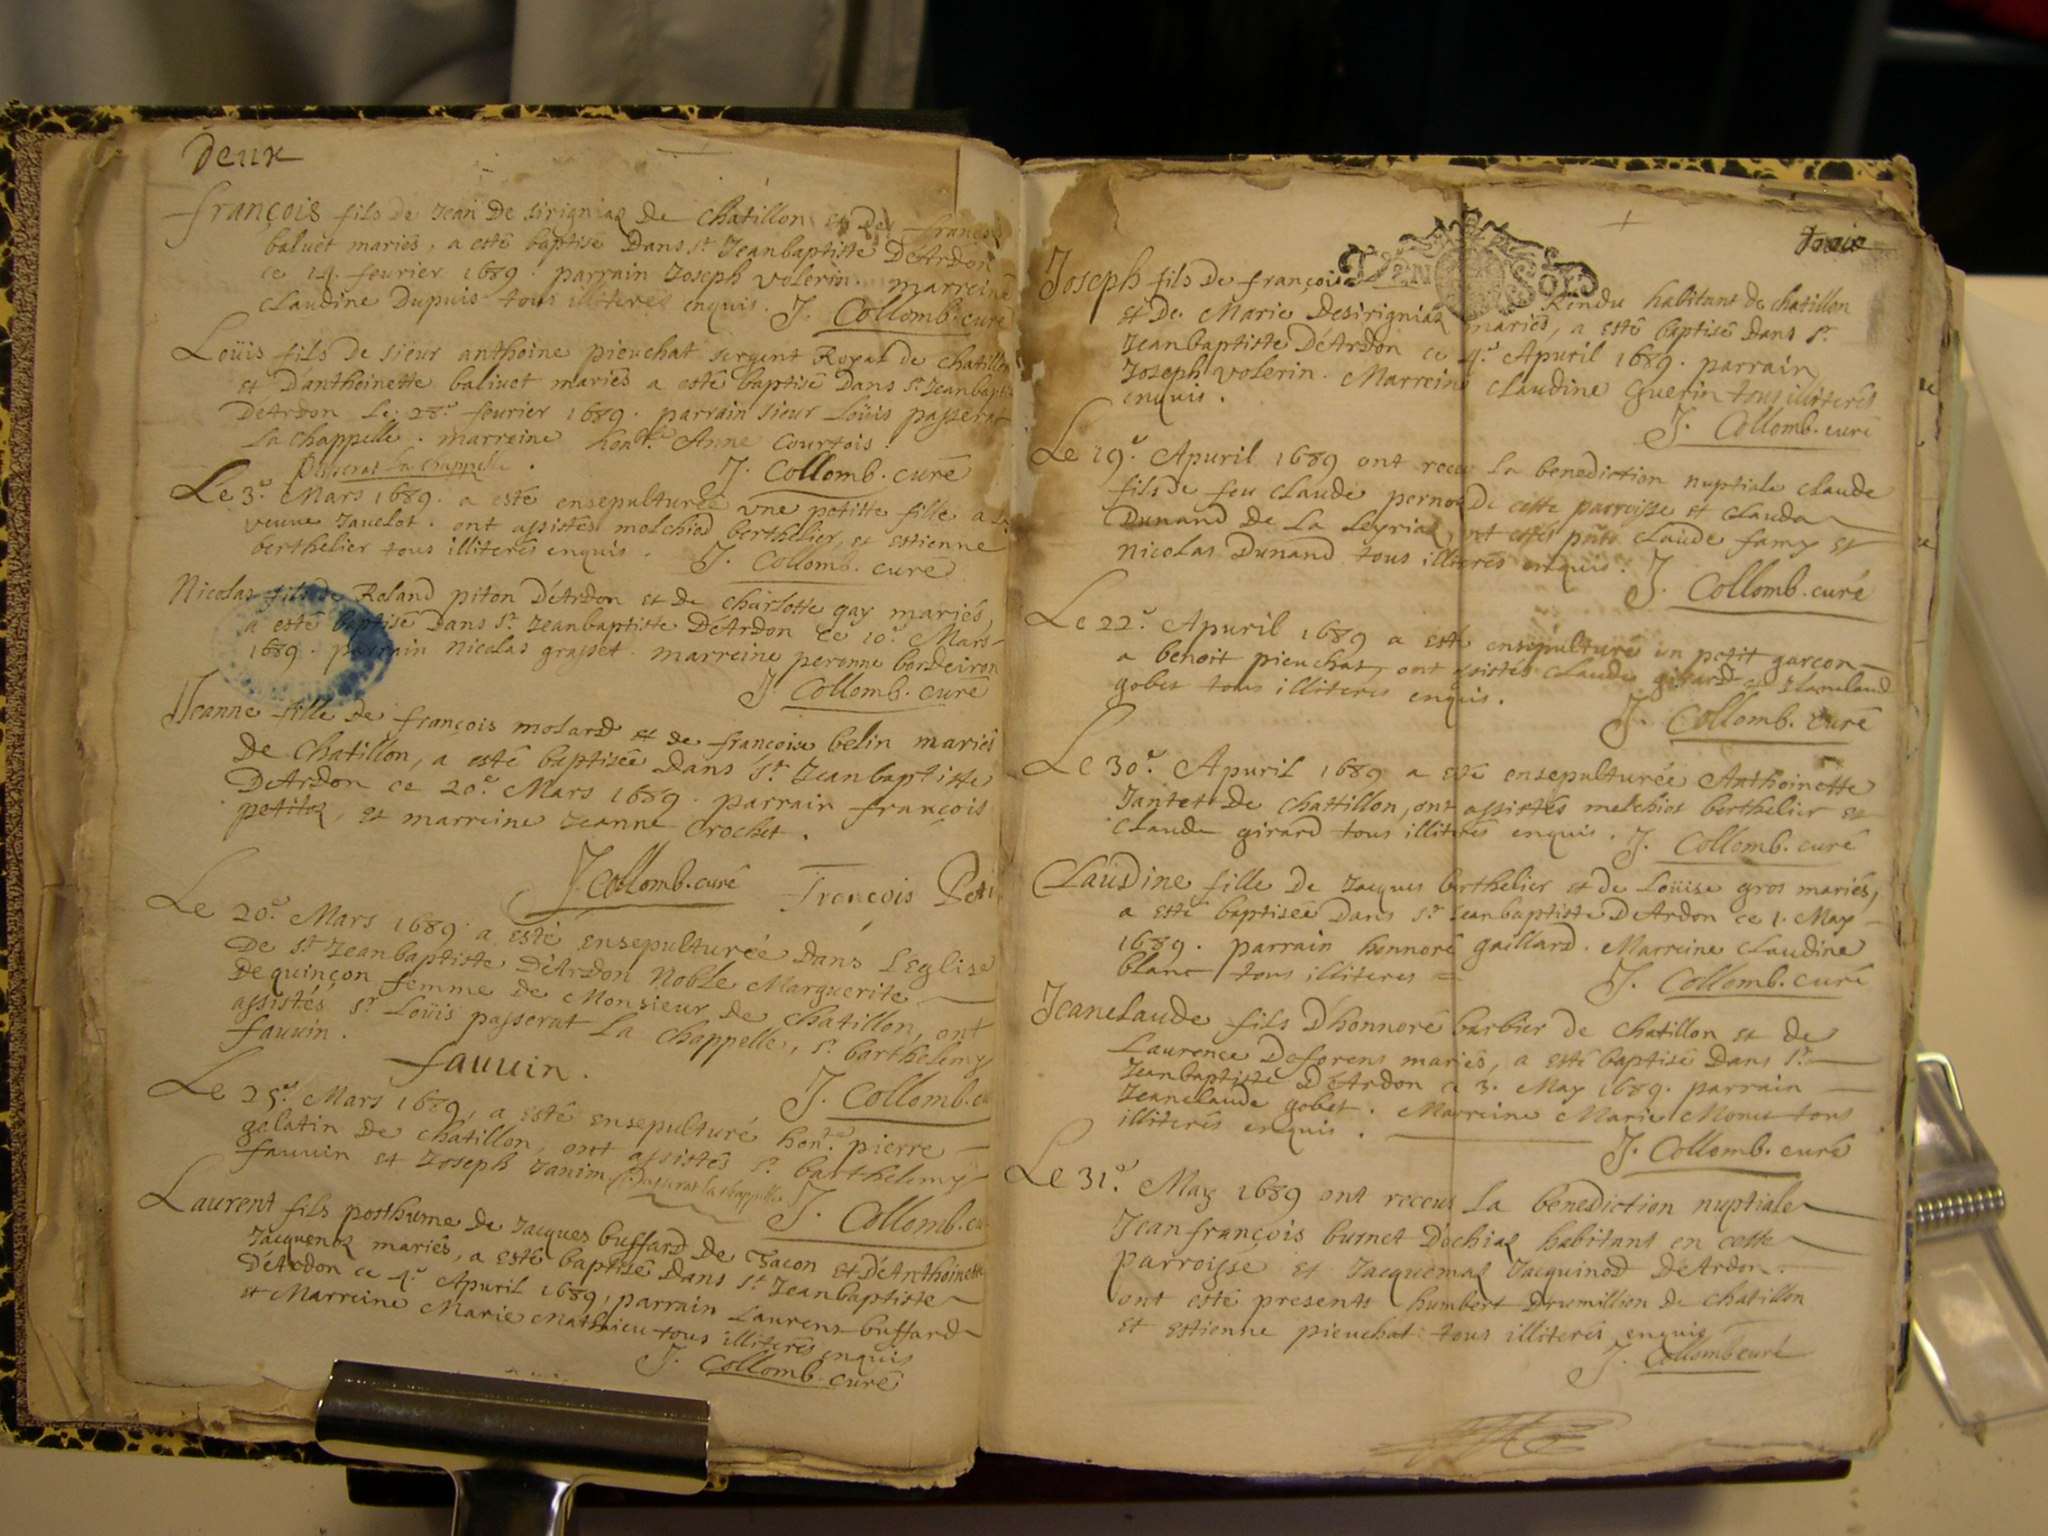 Deux
François fils de Jean De sirigniaz de Chatillon et de
baluet mariés, a esté baptisé Dans st Jeanbaptiste D'Ardon
ce 14. fevrier 1689. parrain Joseph volerin. marreine
Claudine Dupuis tous illiteres enquis. J. Collomb. curé
Loüis fils de sieur anthoine pieuchat sergent Royal de Chatillon
et D'anthoinette baliuet mariés a esté baptisé Dans st Jeanbaptis
D'Ardon Le 28e fevrier 1689. parrain sieur Loüis passerat
La chappelle. marreine honble Anne Courtois.
Passerat La Chappelle. J. Collomb. curé
Le 3e Mars 1689. a esté ensepulturée une petitte fille a La
veuve Jauelot. ont assistés molchied berthelier, et estienne
berthelier tous illiterés enquis. J. Collomb. curé
Nicolas fils de Roland piton D'Ardon et de Charlotte gay mariés,
a esté baptisé Dans st Jeanbaptiste D'Ardon ce 10e Mars
1689. parrain Nicolas grasset. marreine peronne bordeiron
J. Collomb. curé
Jeanne fille de françois molard et de françoise belin mariés
De Chatillon, a esté baptisée Dans st Jeanbaptiste
D'Ardon ce 20e Mars 1689. parrain françois
petitoz, et marreine Jeanne Crochet.
J Collomb. curé François Peti
Le 20e Mars 1689. a esté ensepulturée dans L'Eglise
De st Jeanbaptiste D'Ardon Noble Marguerite
De quinçon femme de Monsieur de Chatillon, ont
assistés sr Loüis passerat La Chappelle, sr barthelemy
fauuin.
fauuin. J. Collomb. cu
Le 25e Mars 1689, a esté ensepulturé honte pierre
gelatin de Chatillon, ont assistés sr barthelemy
fauuin et Joseph Janin. Passerat la chappelle J. Collomb. cu
Laurent fils posthume de Jacques buffard De Tacon et D'Anthoinette
Jacquenoz mariés, a esté baptisé Dans st Jeanbaptiste
D'Ardon ce 4e Apuril 1689, parrain Laurens buffard
et Marreine Marie Mathieu tous illiterés enquis
J. Collomb. curé
trois
Joseph fils de françois Rendu habitant de Chatillon
et De Marie Desirigniaz mariés, a esté baptisé Dans st
Jeanbaptiste D'Ardon ce 4e Apuril 1689. parrain
Joseph volerin. Marreine Claudine Guerin tous illiterés
enquis. J. Collomb. curé
Le 19e Apuril 1689 ont receu La benediction nuptiale Claude
fils de feu Claude pernod De cette parroisse et Clauda
Dunand De La Leyriaz, ont estés pnts Claude famy et
Nicolas Dunand tous illiterés enquis.
J. Collomb. curé
Le 22e Apuril 1689 a esté ensepulturé un petit garcon
a benoit pieuchat, ont assistés Claude girard et
gobet tous illiteres enquis. J. Collomb. curé
Le 30e Apuril 1689 a esté ensepulturée Anthoinette
Jantet De Chattillon, ont assistés melchiot berthelier et
Claude girard tous illiterés enquis. J. Collomb. curé
Claudine fille De Jacques berthelier et de Loüise gros mariés,
a esté baptisée Dans st Jeanbaptiste D'Ardon ce 1. May
1689. parrain honnoré gaillard. Marreine Claudine
blanc tous illiteres J. Collomb. curé
Jeanclaude fils D'honnoré barbier de Chatillon et de
Laurence Deforens mariés, a esté baptisé Dans st
Jeanbaptiste D'Ardon a 3. May 1689. parrain
Jeanclaude gobet. Marreine Marie Monet tous
illiterés enquis. J. Collomb. curé
Le 31e May 1689 ont receus La benediction nuptiale
Jeanfrançois burnet D'ochiaz habitant en cette
parroisse et Jacquemaz Jacquinod D'Ardon.
ont esté presents humbert Drumillion de Chatillon
et Estienne pieuchat tous illiterés enquis
J. Collomb curé